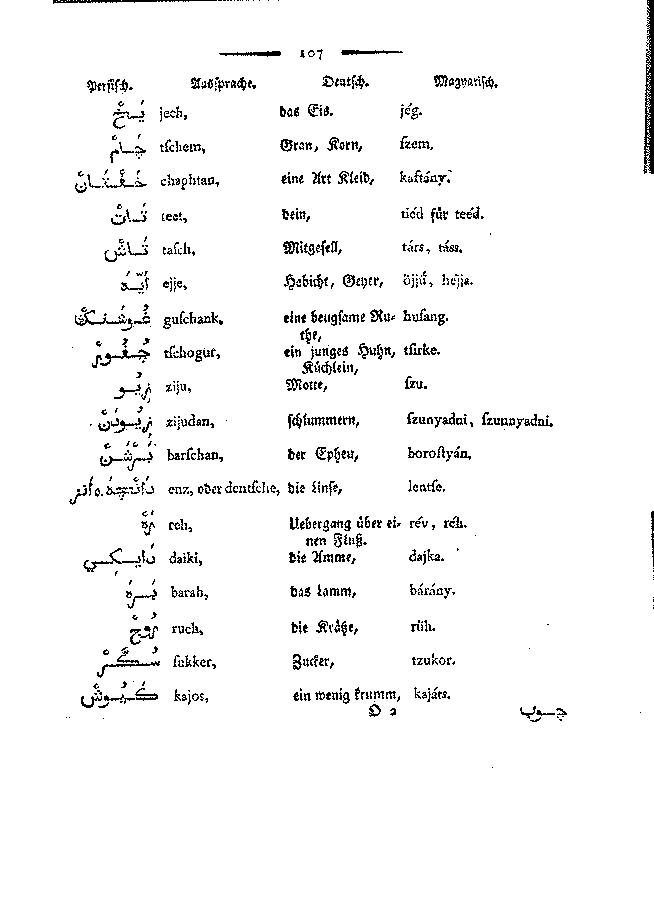 107
Persisch. Aussprache. Deutsch. Magyarisch.
يَخْ jech, das Eis. jég.
چَامْ tſchem, Gran, Korn, ſzem.
خَفْتَانْ chaphtan, eine Art Kleid, kaftány.
تَاتْ teet, dein, tiéd für teéd.
تَاشْ taſch, Mitgeſell, társ, táss.
ejje, Habicht, Geyer, öjjű, hejja.
غُوشَنْكْ guſchank, eine beugſame Ru- huſang.
the,
چُغُورْ tſchogur, ein junges Huhn, tſirke.
Küchlein,
زِيُو ziju, Motte, ſzu.
زِيُودَنْ zijudan, ſchlummern, ſzunyadni, ſzunnyadni.
بَرْشَنْ barſchan, der Epheu, boroſtyán.
enz, oder dentſche, die Linſe, lentſe.
رَهْ reh, Uebergang über ei- rév, réh.
nen Fluß.
دَايكي daiki, die Amme, dajka.
بَرَهْ barah, das Lamm, bárány.
رُوخْ ruch, die Krätze, rüh.
سُكَّرْ ſukker, Zucker, tzukor.
كَيُوشْ kajos, ein wenig krumm, kajáts.
O 2 چوب